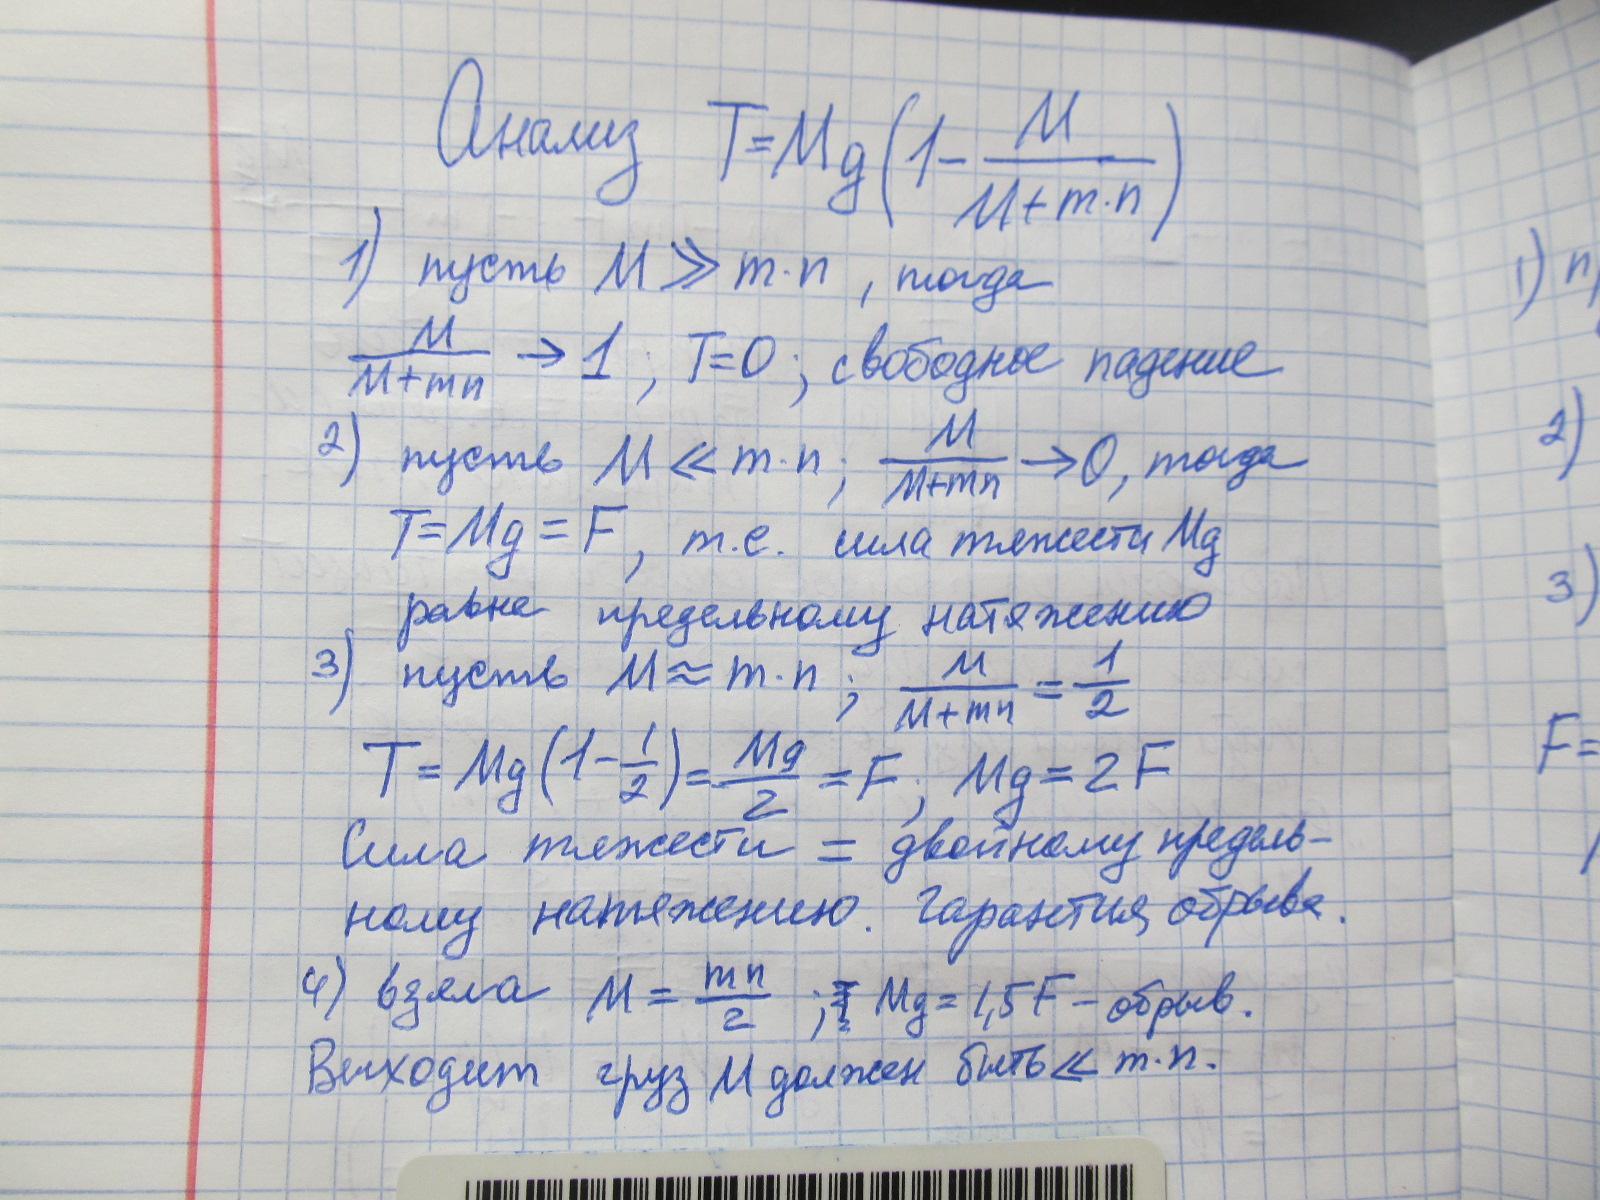 Анализ T=Mg(1-M/(M+m·n))
1) пусть M≫m·n, тогда
M/(M+mn)→1; T=0; свободное падение
2) пусть M≪m·n; M/(M+mn)→0, тогда
T=Mg=F, т.е. сила тяжести Mg
равна предельному натяжению
3) пусть M≈m·n; M/(M+mn)=1/2
T=Mg(1-1/2)=Mg/2=F; Mg=2F
Сила тяжести = двойному предель-
ному натяжению. Гарантия обрыва.
4) взяла M=mn/2; Mg=1,5F-обрыв.
Выходит груз M должен быть≪m·n.
1) п
2)
3)
F=